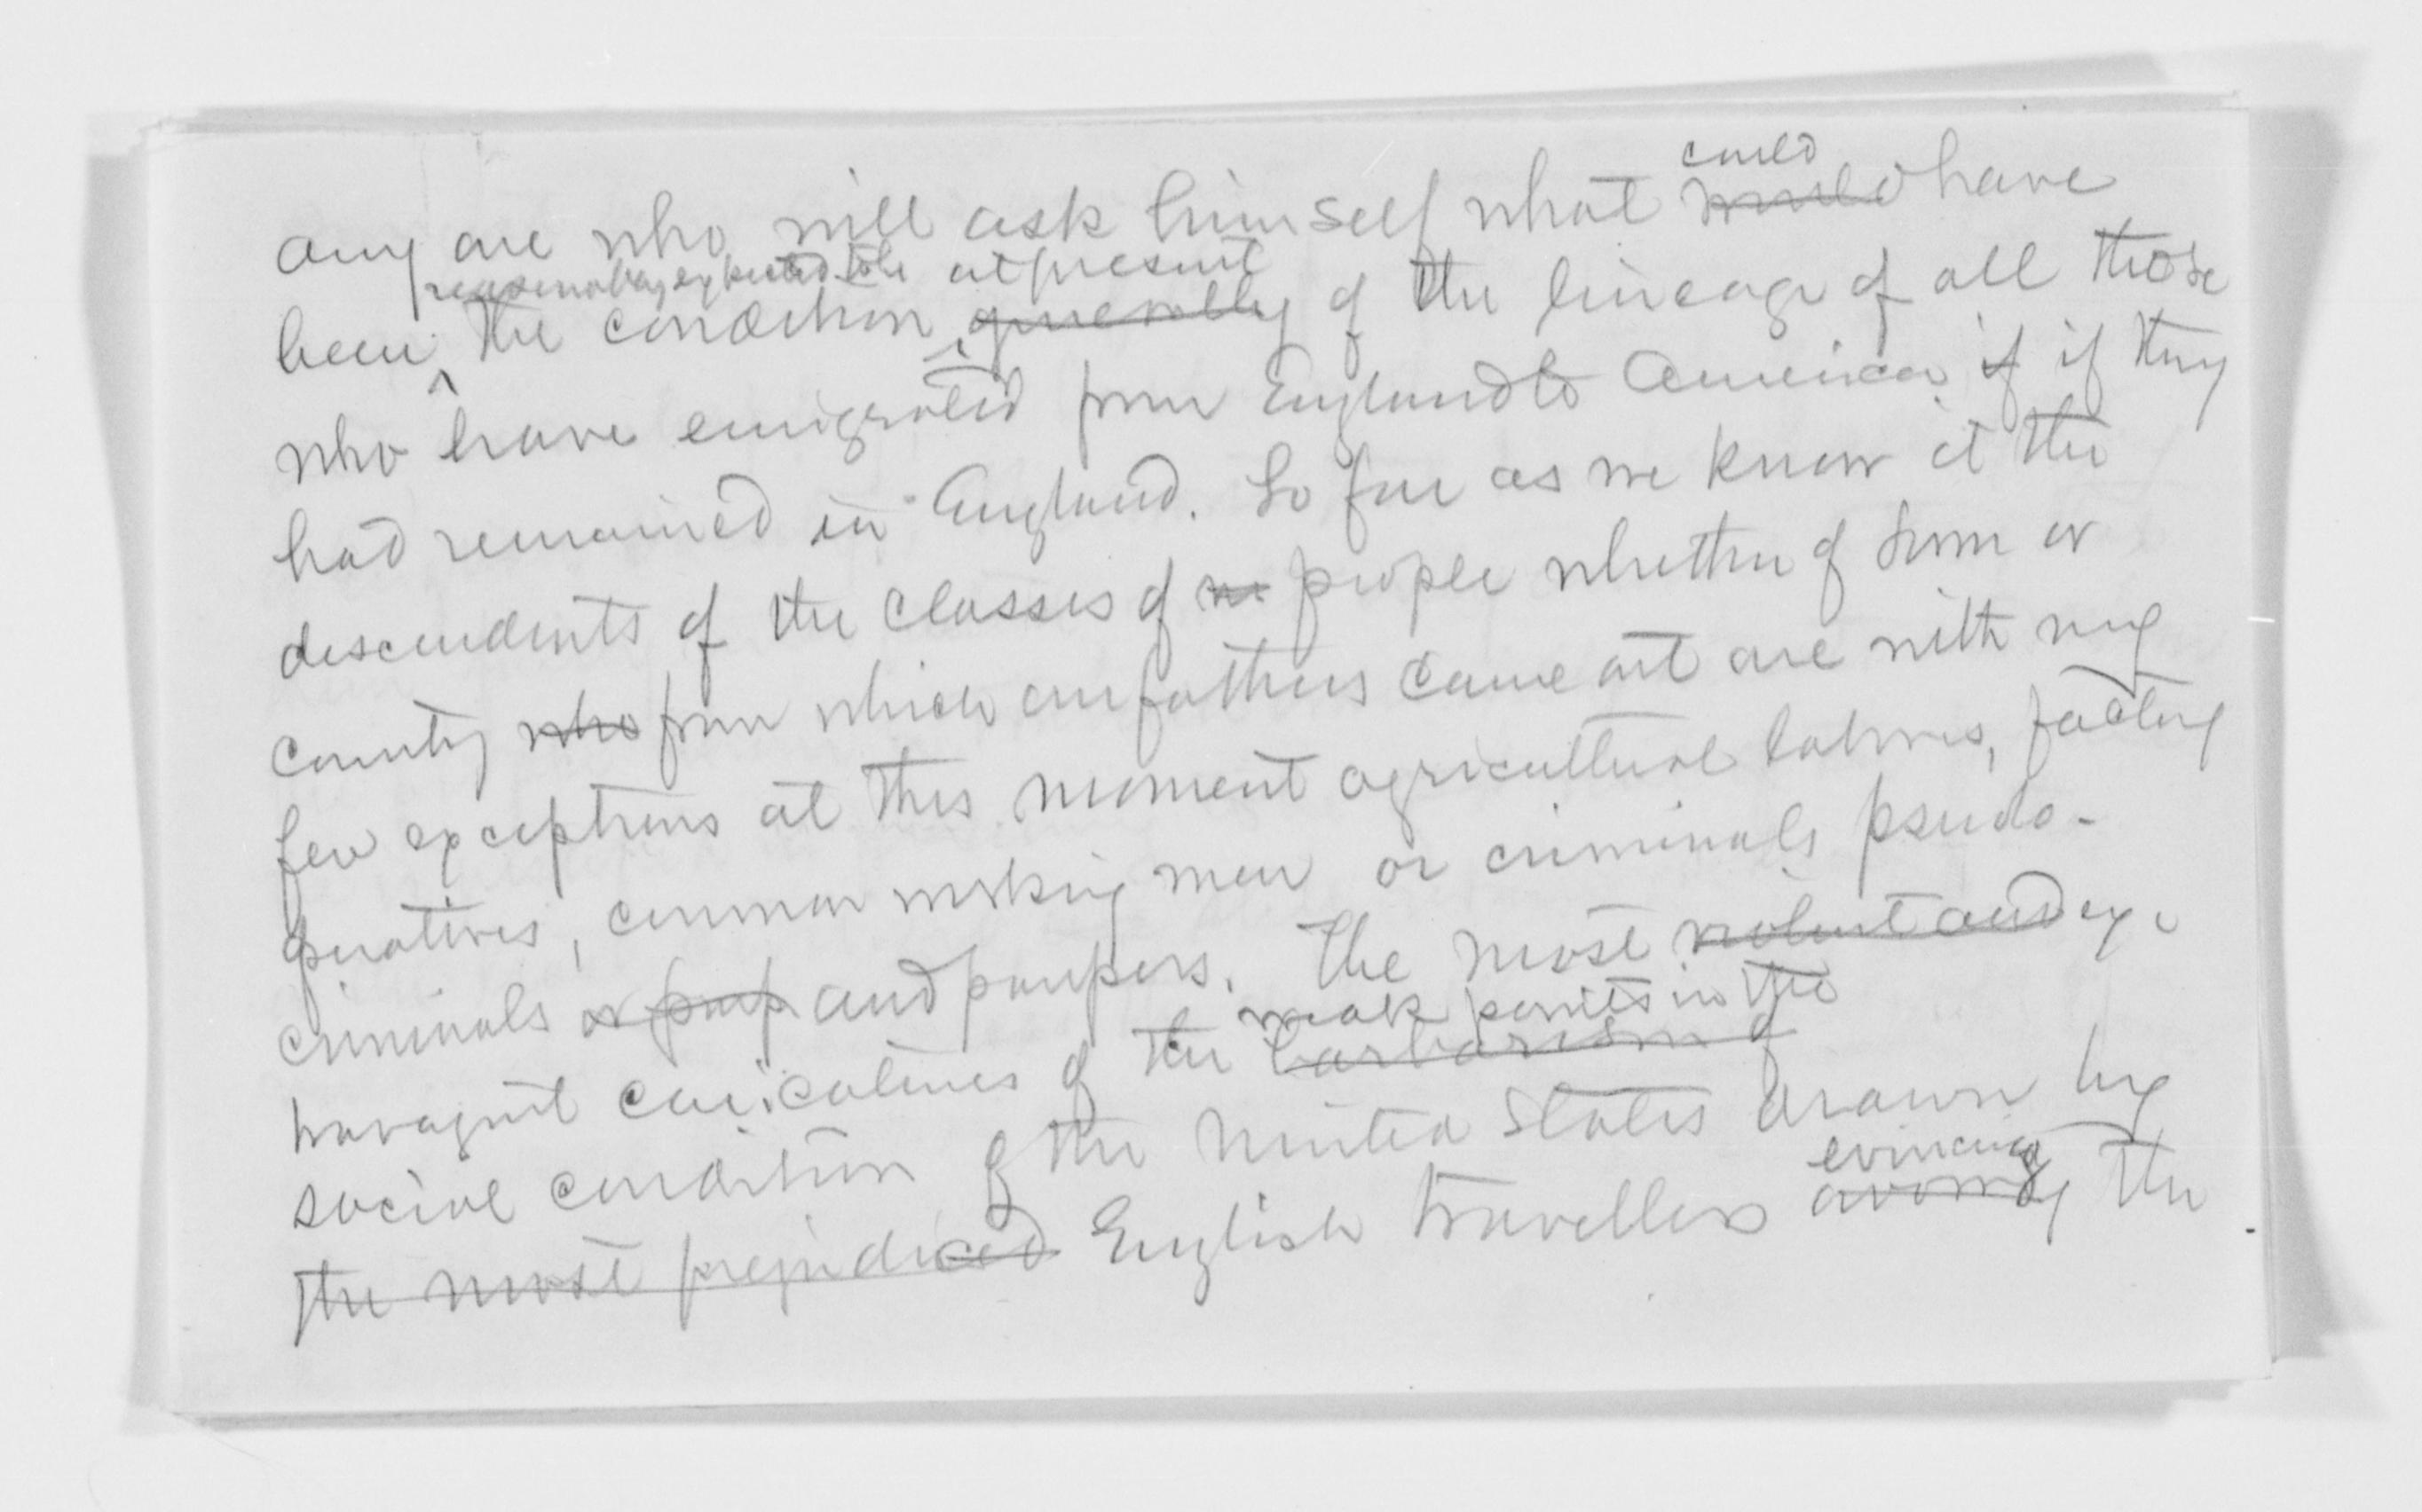 could
any one who will ask himself what would have
reasonably expected to be at present
been the condition generally of the lineage of all those
who have emigrated from England to America if if they
had remained in England. So far as we know it the
descendents of the classes of people whether of town or
country who from which our fathers came out are with my
few exceptions at this moment agricultural labores, factory
operatives, common working men or criminals pseudo-
criminals or paup and paupers. The most violent and ex-
weak points in the
travagent caricatures of the barbarism of
social condition of the United States drawn by
evincing
the most prejudiced English travellers avowing the